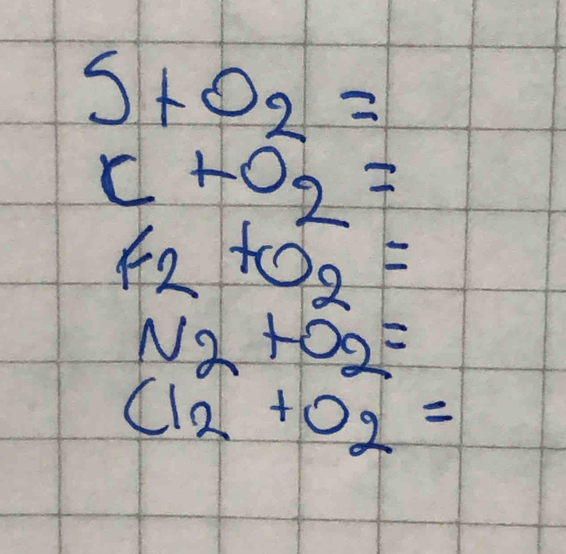 S+O₂ =
C +O₂ =
F₂ +O₂ =
N₂ +O₂=
Cl₂ +O₂ =